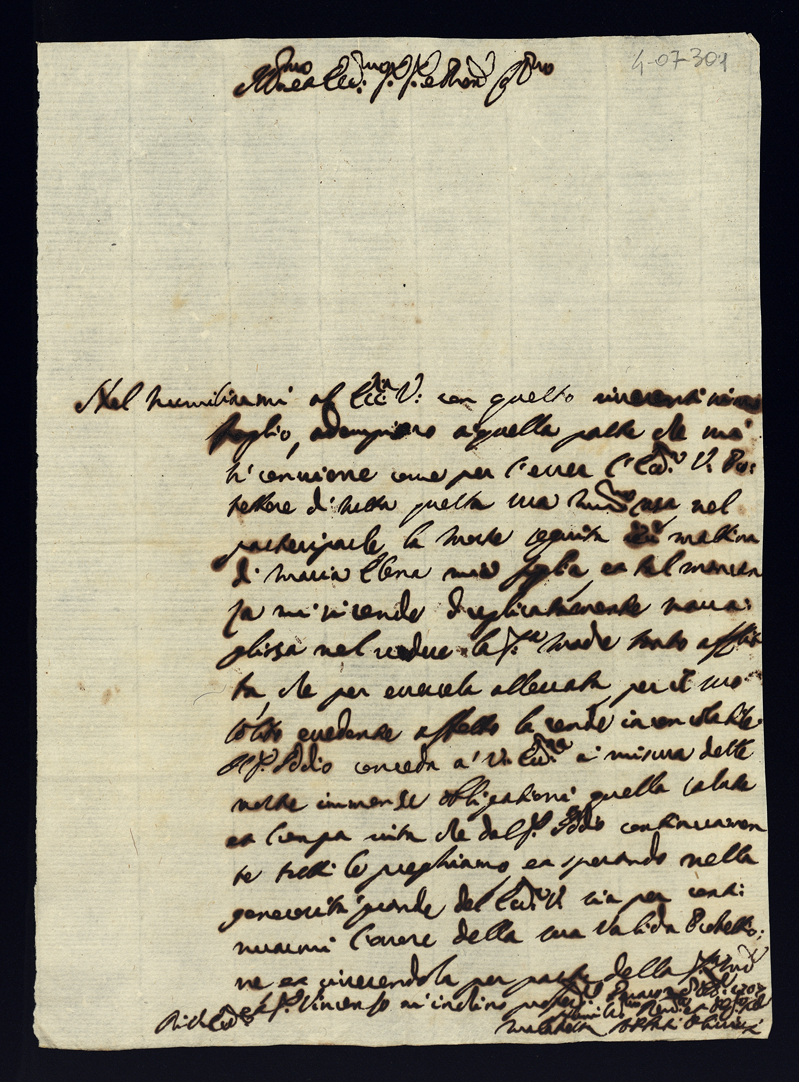 4-07-301
Ill.mo et Ecc.mo S. S. e Pron Col.mo
Nel humiliarmi al Ecc.za V: con questo riverentissimo
foglio, adempisco a quella parte che mi
si conviene come per l'esser l'Ecc.za V. Pro:
tettore di tutta questa sua casa nel
participarle la morte seguita mattina
di Maria Elena mia figlia, et tal mancan
za mi si rende duplicatamente trava:
gliosa nel vedere la S.ra Madre tanto afflit
ta, che per haverla allevata per il suo
solito evedente affetto la rende inconsolabile
Il S. Iddio conceda a' V. Ecc.za a misura delle
nostre immense obligationi quella salute
et longa vita che dal S. Iddio continuamen
te tutti le preghiamo, et sperando nella
generosità grande del Ecc.za V. sia per conti
nuarmi l'onore della sua valida Protettio:
ne et riverendola per parte della S.ra Madre
et S. Vincenzo m'inchino
Di V. Ecc.za